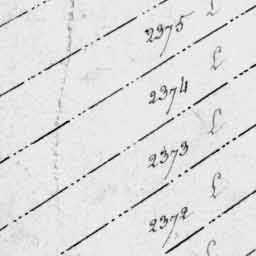 2375
L
2374
L
2373
L
2372
L